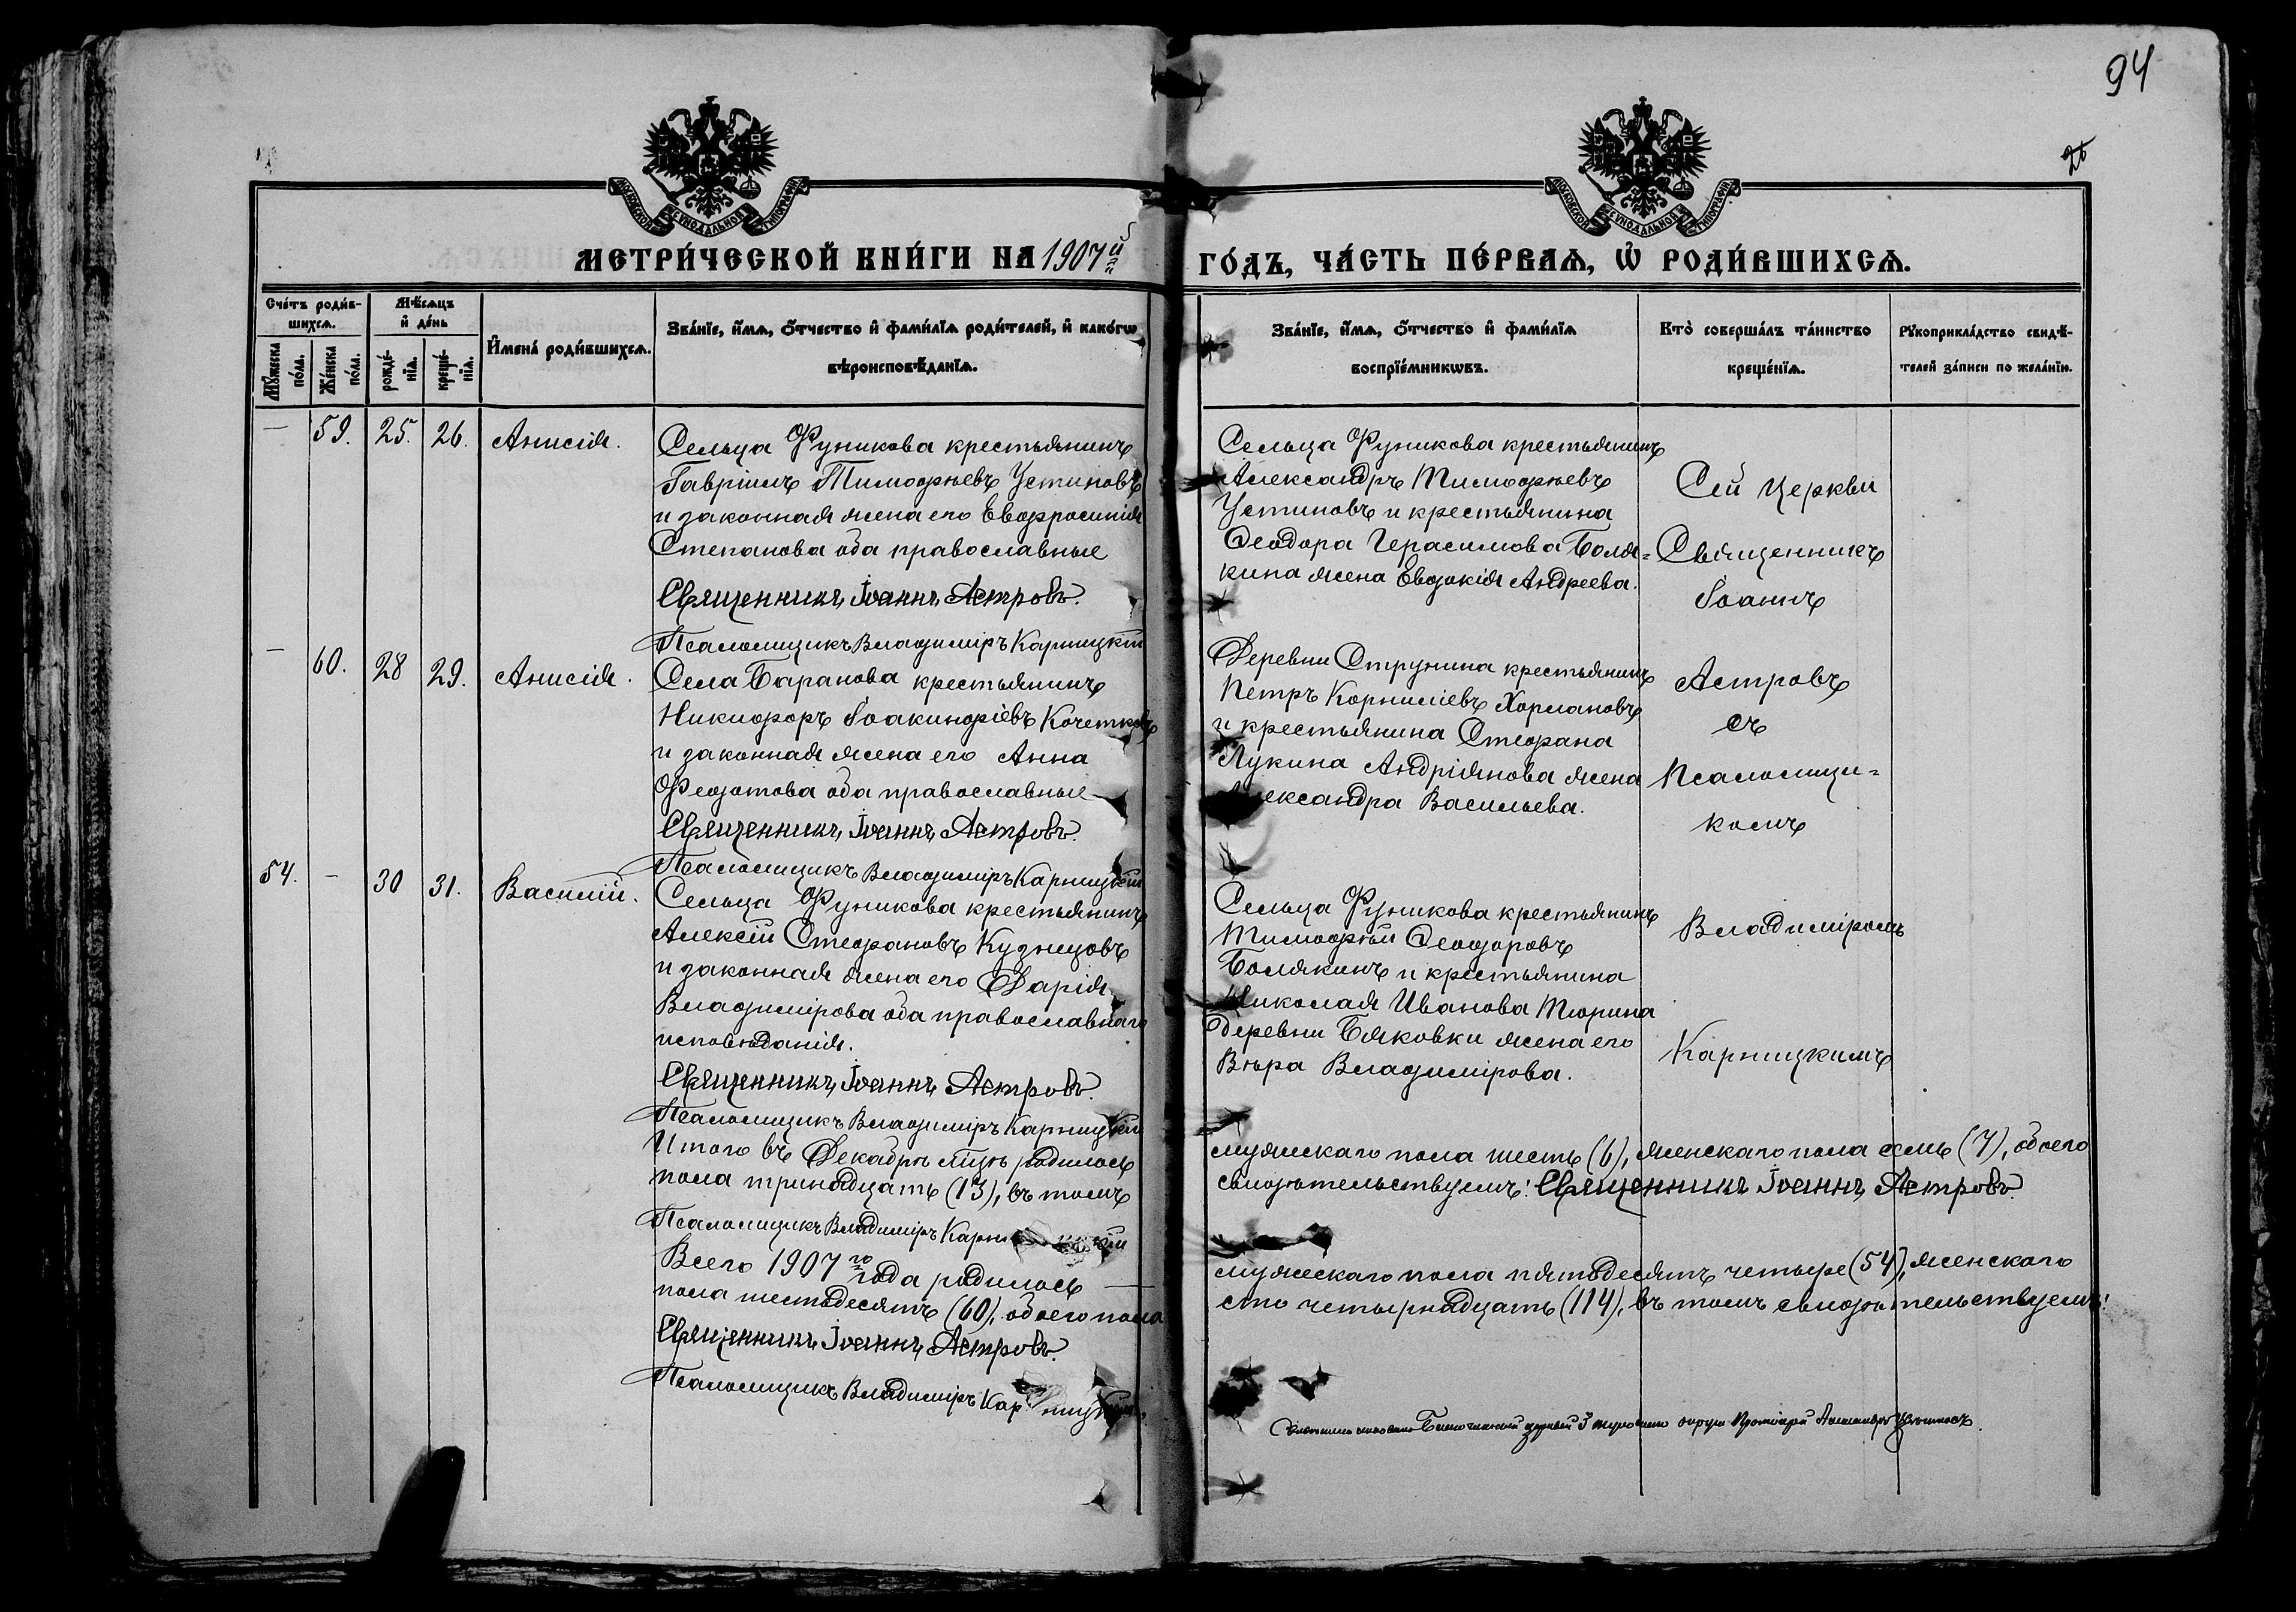 94
26
МОСКОВСКОЙ СѴНОДАЛЬНОЙ ТИПОГРАФІИ
МОСКОВСКОЙ СѴНОДАЛЬНОЙ ТИПОГРАФІИ
МЕТРИ́ЧЕСКОЙ КНИ́ГИ НА 1907й
ГО́ДЪ, ЧА́СТЬ ПЕ́РВАѦ, Ѽ РОДИ́ВШИХСѦ.
Сче́тъ роди́в-
шихсѧ.
Мѣ́сѧцъ
и҆ де́нь
Мꙋ́жеска
по́ла.
Же́нска
по́ла.
рожде́-
нїѧ.
креще́-
нїѧ.
И҆мена̀ роди́вшихсѧ.
Зва́нїе, и҆́мѧ, ѻ҆́тчество и҆ фами́лїѧ роди́телей, и҆ како́гѡ
вѣроисповѣ́данїѧ.
Зва́нїе, и҆́мѧ, ѻ҆́тчество и҆ фами́лїѧ
воспрїе́мникѡвъ.
Кто̀ соверша́лъ та́инство
креще́нїѧ.
Рꙋкоприкла́дство свидѣ́-
телей за́писи по жела́нїю.
— 59. 25. 26. Анисія.
Сельца Фуникова крестьянинъ
Гавріилъ Тимоѳѣевъ Устиновъ
и законная жена его Евфросинія
Степанова оба православные
Священникъ Іоаннъ Астровъ.
Псаломщикъ Владиміръ Карницкій
Сельца Фуникова крестьянинъ
Александръ Тимоѳѣевъ
Устиновъ и крестьянина
Ѳеодора Герасимова Боля-
кина жена Евдокія Андреева.
Сей церкви
Священникъ
Іоаннъ
— 60. 28 29. Анисія.
Села Баранова крестьянинъ
Никифоръ Іоакинфіевъ Кочетковъ
и законная жена его Анна
Ѳедотова оба православные
Священникъ Іоаннъ Астровъ.
Псаломщикъ Владиміръ Карницкій
Деревни Струнина крестьянинъ
Петръ Корниліевъ Хормановъ
и крестьянина Стефана
Лукина Андріянова жена
Александра Васильева.
Астровъ
съ
Псаломщи-
комъ
54. — 30 31. Василій.
Сельца Фуникова крестьянинъ
Алексій Стефановъ Кузнецовъ
и законная жена его Дарія
Владимірова оба православнаго
исповѣданія.
Священникъ Іоаннъ Астровъ.
Псаломщикъ Владиміръ Карницкій
Сельца Фуникова крестьянинъ
Тимоѳѣй Ѳеодоровъ
Болякинъ и крестьянина
Николая Иванова Тюрина
деревни Бяковки жена его
Вѣра Владимірова.
Владиміромъ
Карницкимъ
Итого въ Декабрѣ мцѣ родилось
мужскаго пола шесть (6), женскаго пола семь (7), обоего
пола тринадцать (13), въ томъ
свидѣтельствуемъ: Священникъ Іоаннъ Астровъ.
Псаломщикъ Владиміръ Карницкій
Всего 1907го года родилось —
мужескаго пола пятьдесятъ четыре (54), женскаго
пола шестьдесятъ (60), обоего пола
сто четырнадцать (114), въ томъ свидѣтельствуемъ:
Священникъ Іоаннъ Астровъ.
Псаломщикъ Владиміръ Карницкій
Благочинный церквей 3 округа Протоіерей